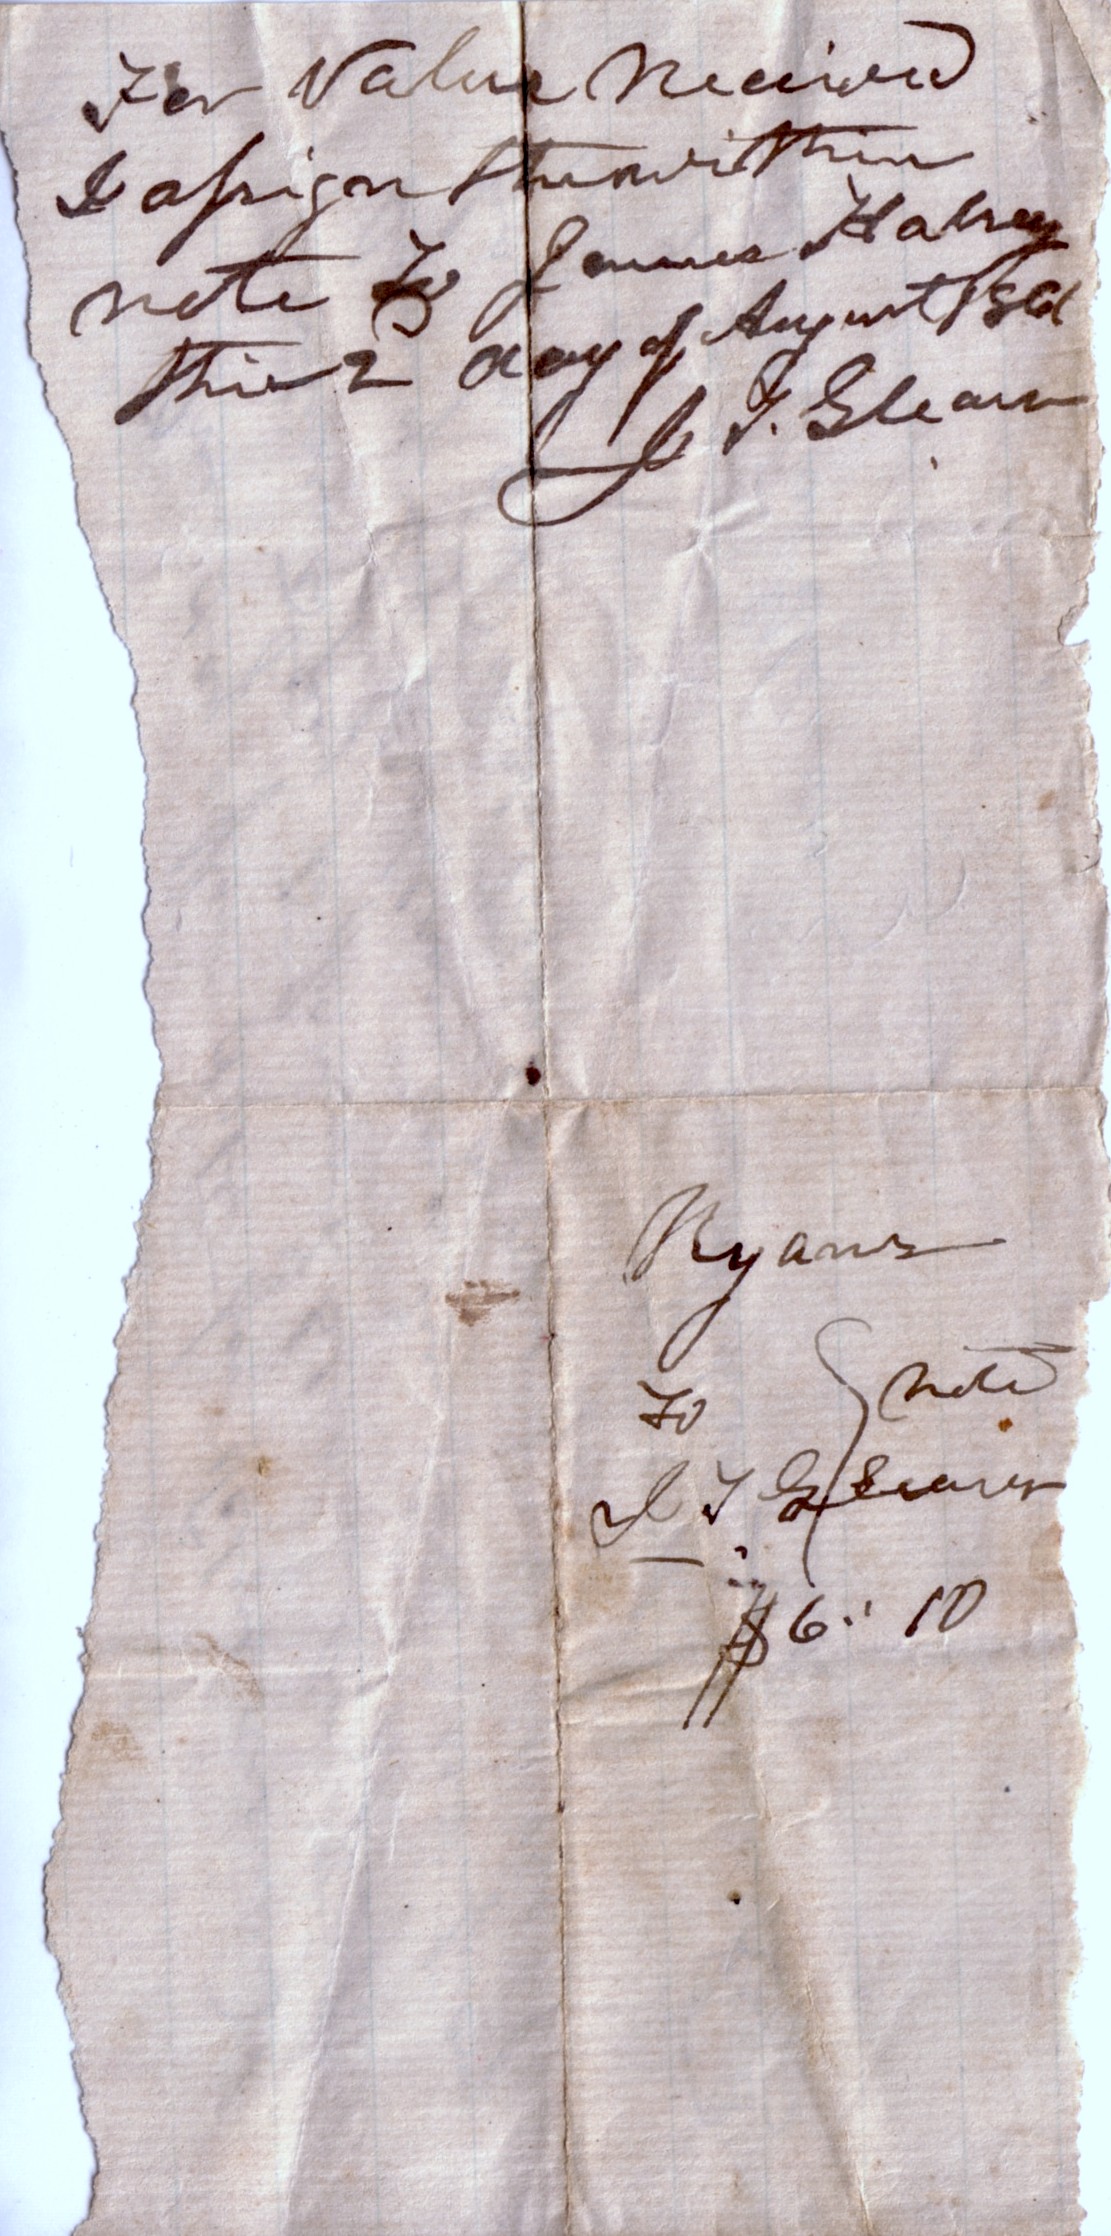 For Value Received
I assign the within
note To James Halsey
this 2 day of August 1861
J. T. Glenn
Ryans
To } note
J T Glenn
$6.10